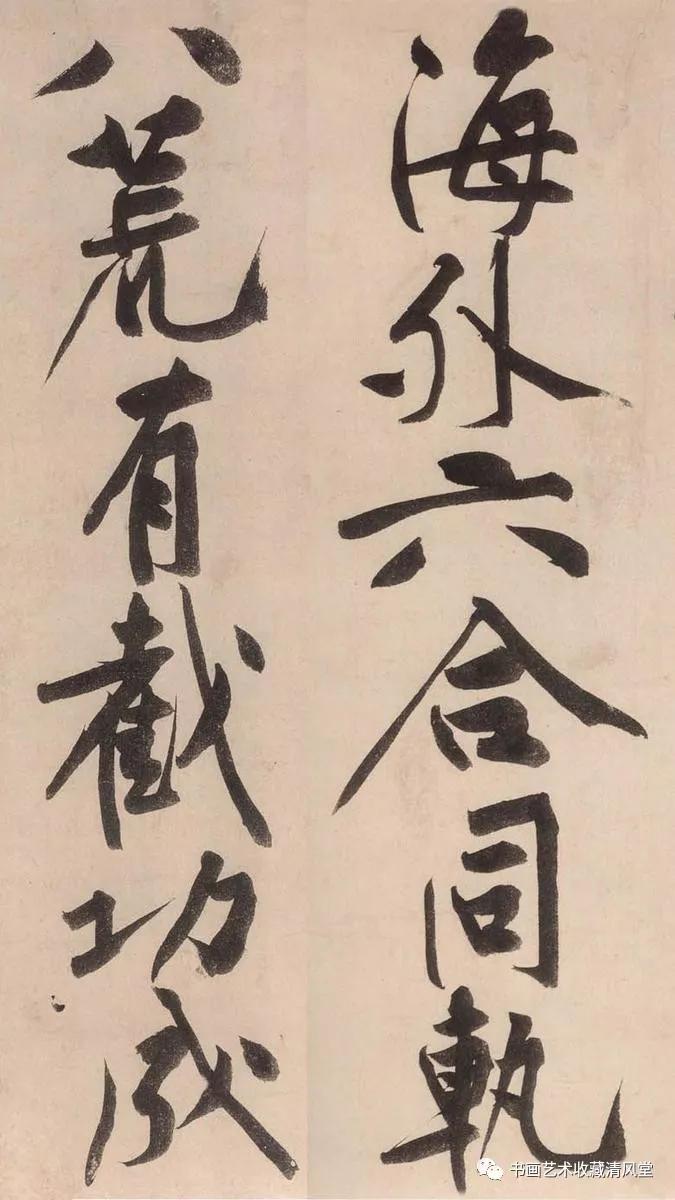 海外六合同軌
八荒有截功成
书画艺术收藏清风堂